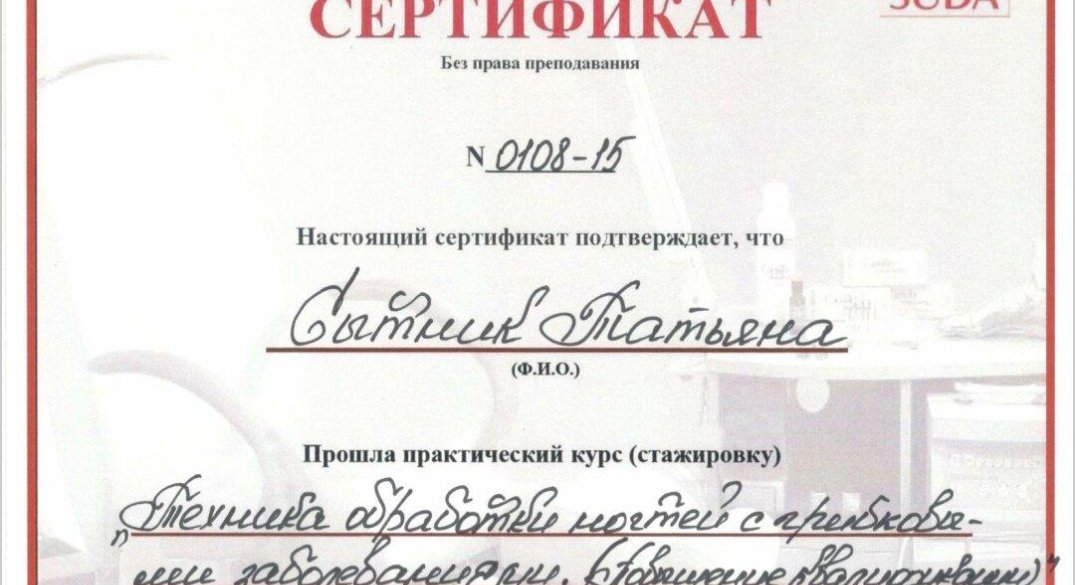 СЕРТИФИКАТ
SUDA
Без права преподавания
N 0108-15
Настоящий сертификат подтверждает, что
Сытник Татьяна
(Ф.И.О.)
Прошла практический курс (стажировку)
„Техника обработки ногтей с грибковы-
ми заболеваниями. (Повышение квалификации)"